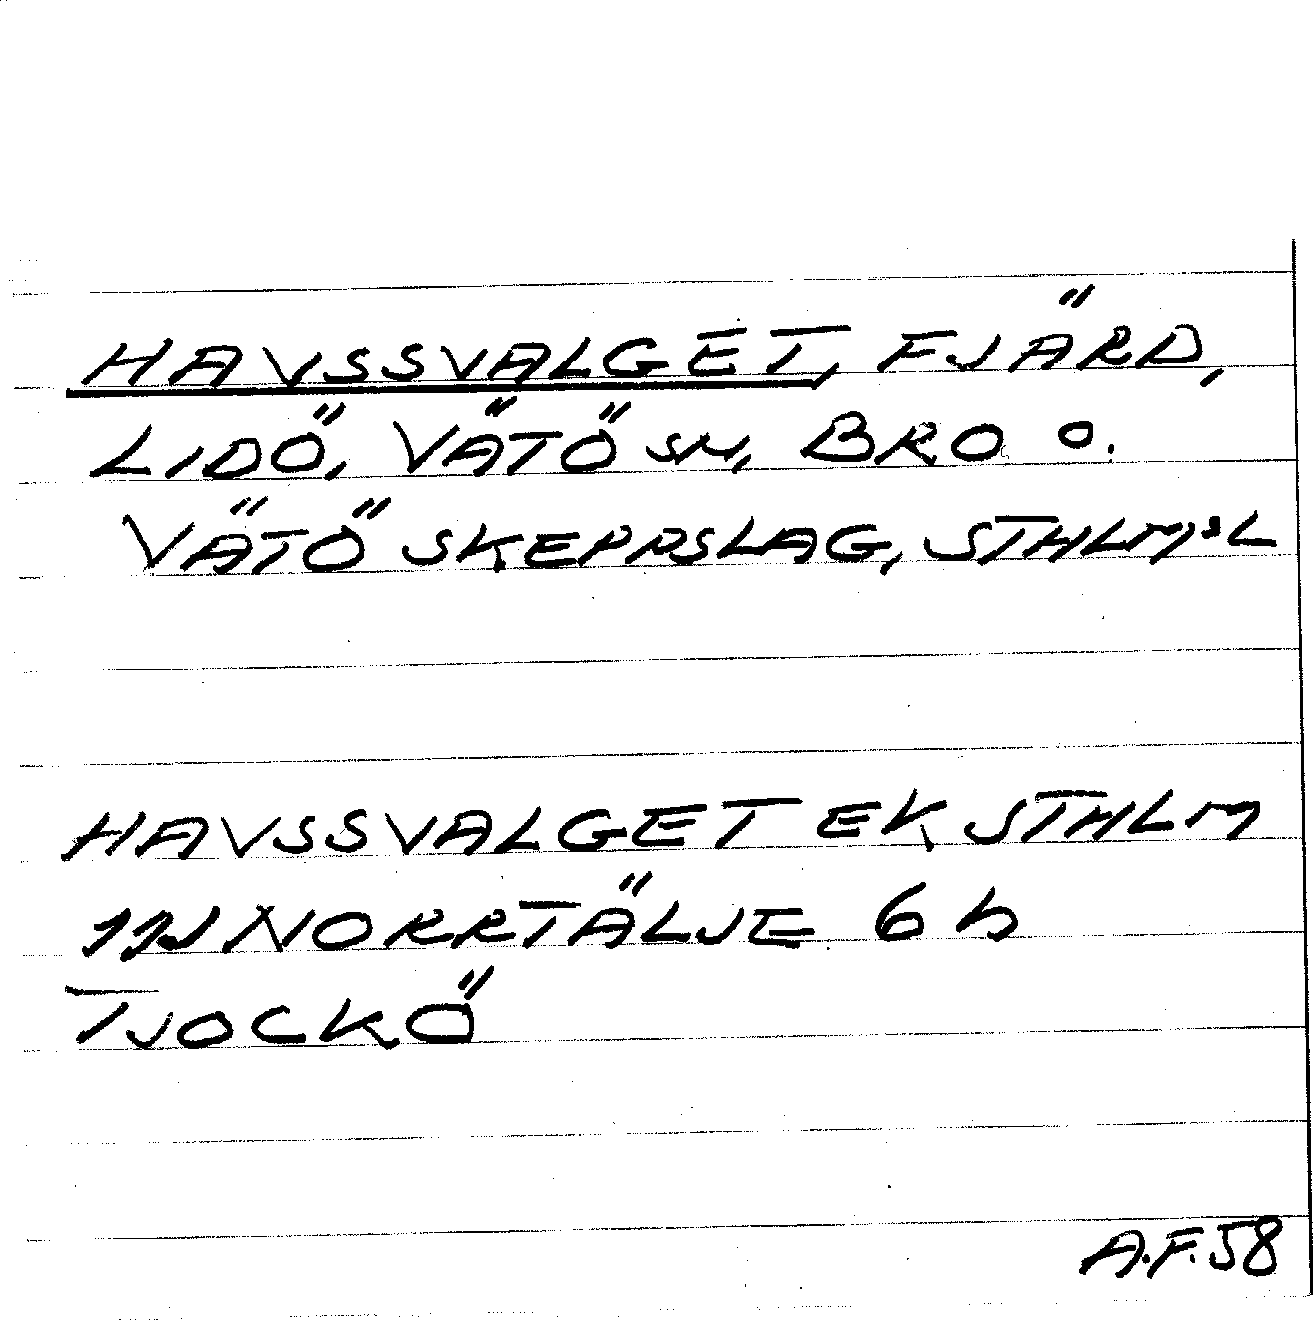 HAVSSVALGET, FJÄRD,
LIDÖ, VÄTÖ SN, BRO O.
VÄTÖ SKEPPSLAG, STHLM:S L
HAVSSVALGET EK STHLM
11J NORRTÄLJE 6 h
TJOCKÖ
A.F. 58